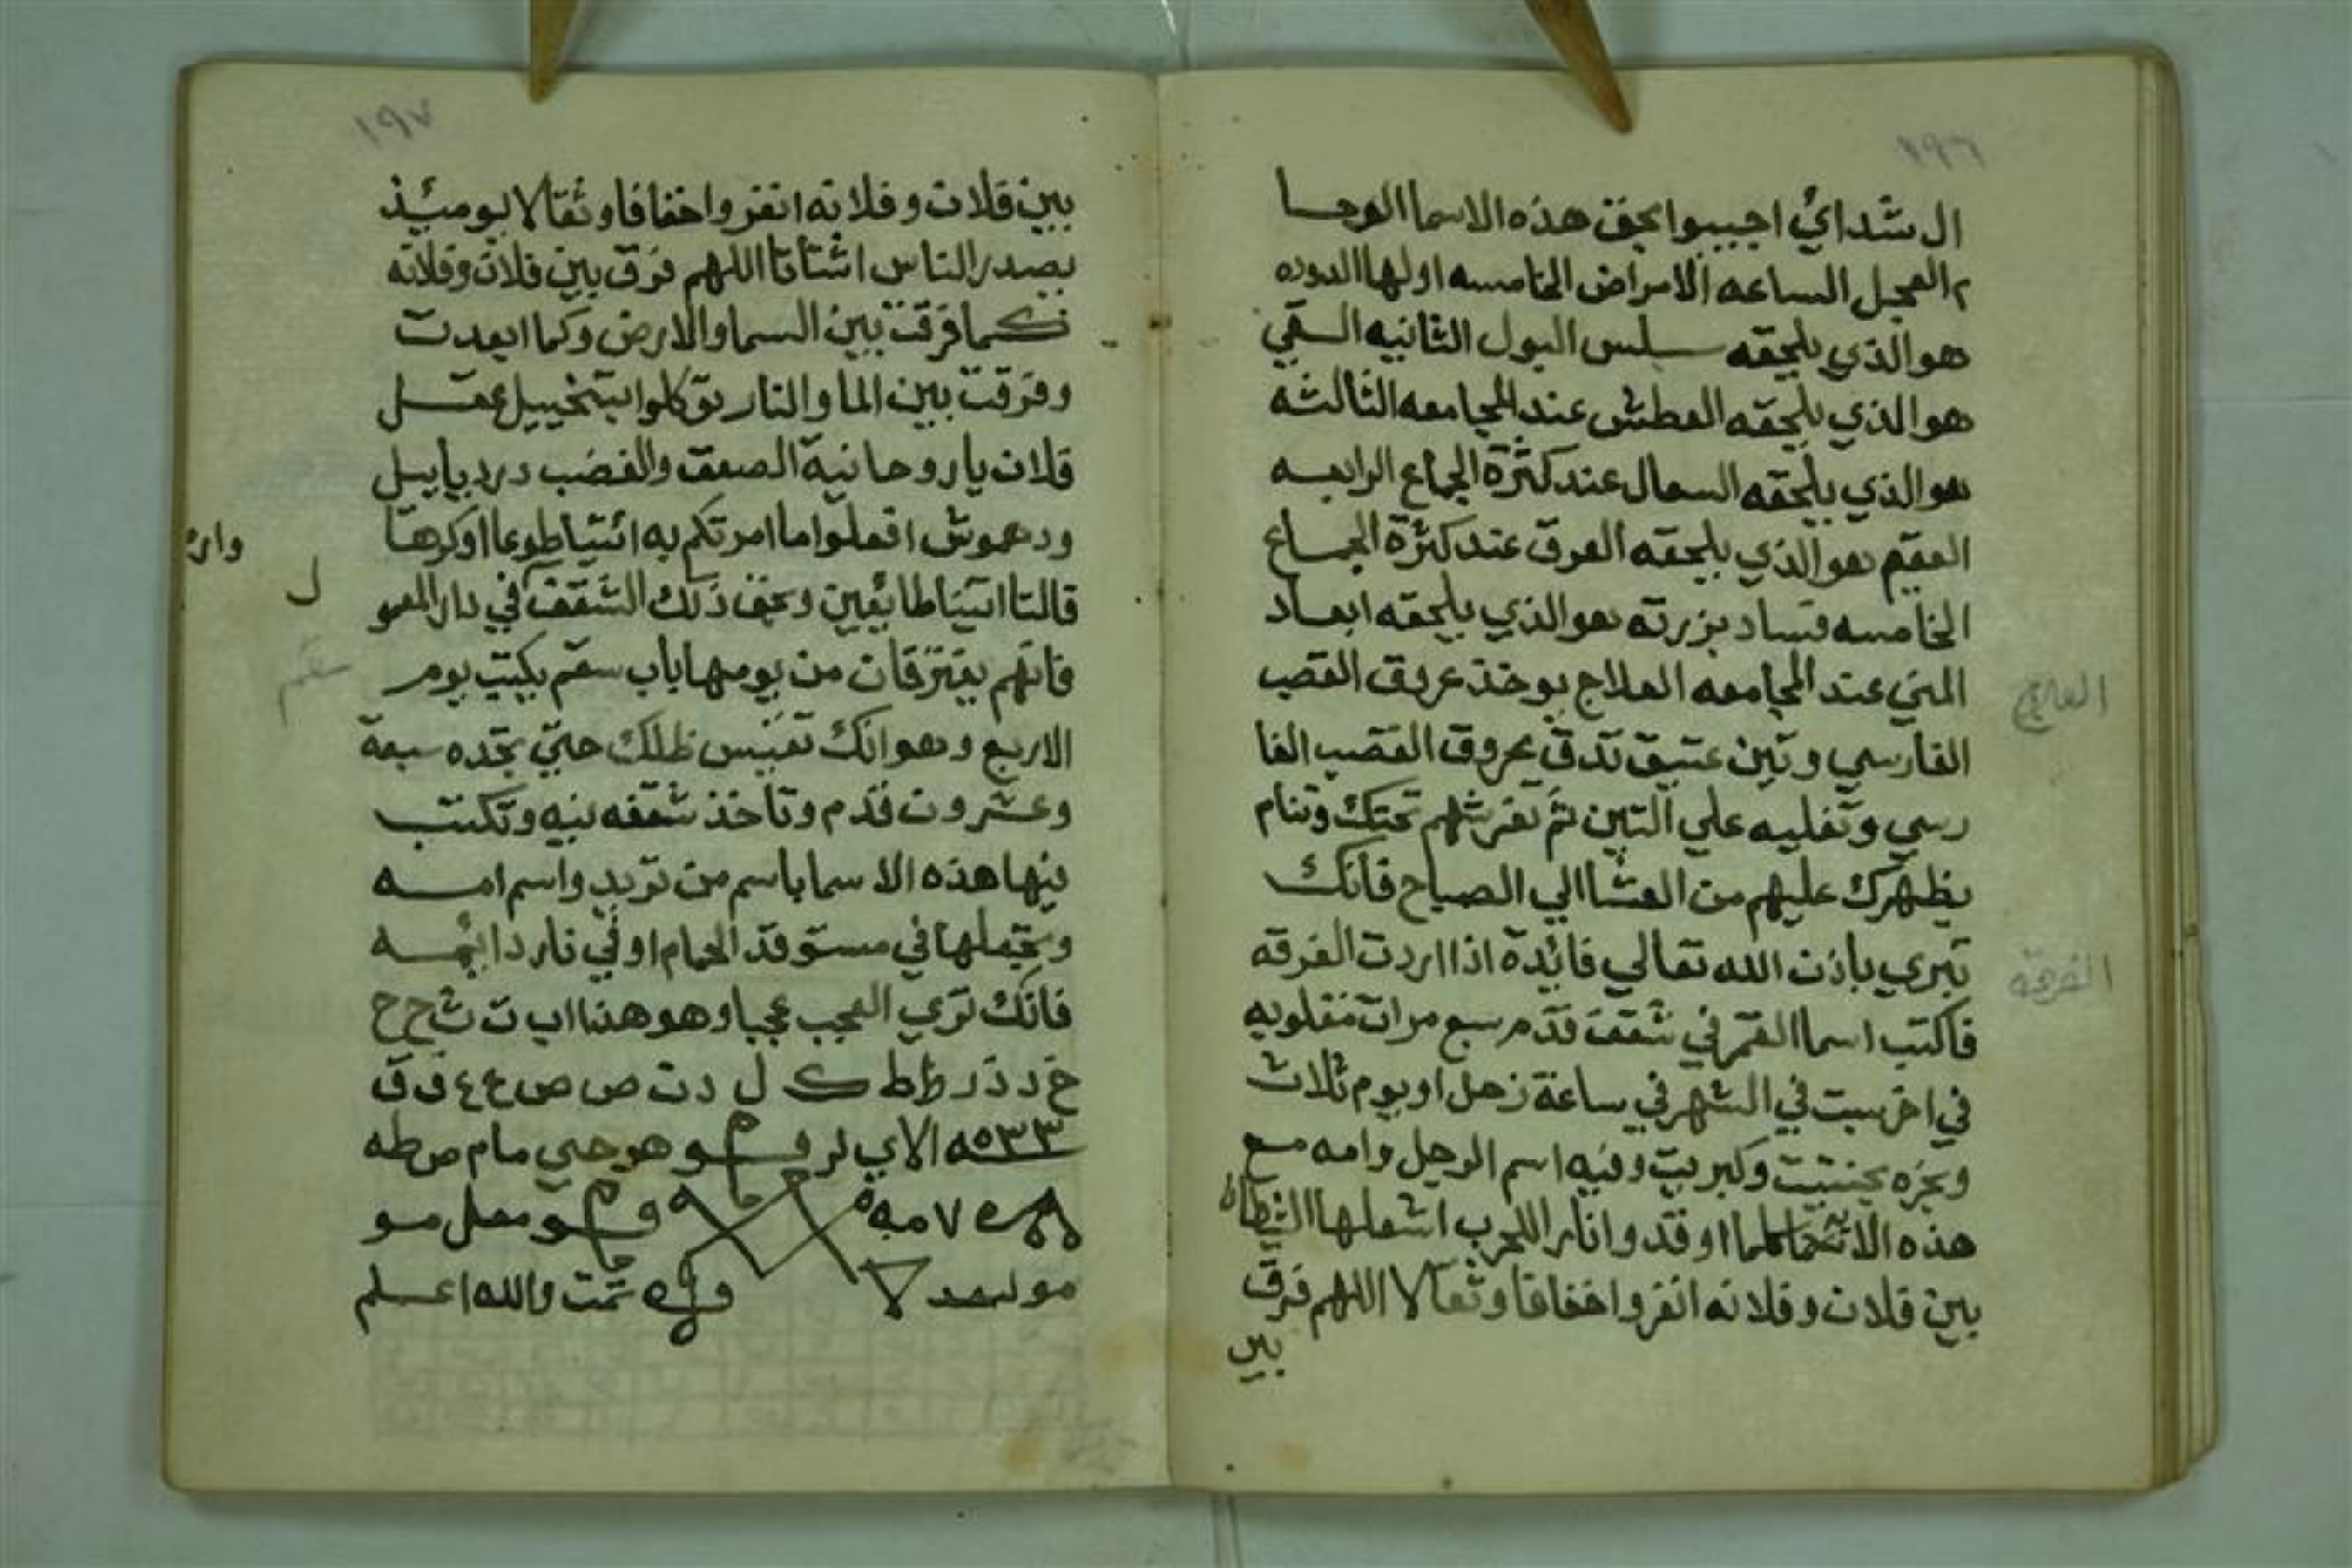 ١٩٦
ال شداي اجيبوا بحق هذه الاسما الوحا
٢ العجل الساعه الامراض الخامسه اولها الدوره
هو الذي يلحقه سلس البول الثانيه السقي
هو الذي يلحقه العطش عند المجامعه الثالثه
هو الذي يلحقه السعال عند كثرة الجماع الرابعه
العقيم هو الذي يلحقه العرق عند كثرة الجماع
الخامسه فساد بزرته هو الذي يلحقه ابعاد
المني عند المجامعه العلاج يوخذ عروق القصب
العلاج
الفارسي وتبن عتيق تدق عروق القصب الفا
رسي وتغليه علي التبن ثم تفرشهم تحتك وتنام
بظهرك عليهم من العشا الي الصباح فانك
تبري باذن الله تعالي فائدة اذا اردت الفرقه
الفرقه
فاكتب اسما القمر في شقف قدم سبع مرات مقلوبه
في اخر سبت في الشهر في ساعة زحل او يوم ثلاث
وبخره بحنتيت وكبريت وفيه اسم الرجل وامه مع
هذه الاسما كلما اوقدوا نار اللحرب اشعلها الشطان
بين فلان وفلانه انفروا خفافا وثقالا اللهم فرق
بين
١٩٧
بين فلان وفلانه انفروا خفافا وثقالا يوميئذ
يصدر الناس اشتاتا اللهم فرق بين فلان وفلانه
كما فرقت بين السما والارض وكما ابعدت
وفرقت بين الما والنار توكلوا بتخبيل عقل
فلان يا روحانية الصعق والغضب درديابيل
ودهموش افعلوا ما امرتكم به ائتيا طوعا او كرها
قالتا اتينا طائعين وبحق ذلك الشقف في دار المعمو
ل
وار
فانهم يفترقان من يومها باب سقم يكتب يوم
سقم
الاربع وهو انك تقيس ظلك حتي تجده سبعة
وعشرون قدم وتاخذ شقفه نيه وتكتب
فيها هذه الاسما باسم من تريد واسم امه
وتجعلها في مستوقد الحمام او في نار دائمه
فانك تري العجب عجبا وهو هذا ا ب ت ث ح ح
خ د ذ ر ظ ط ك ل د ن ص ض ع غ ف ق
هو حي مام ص طه
٧ مه
معل مو
تمت والله اعلم